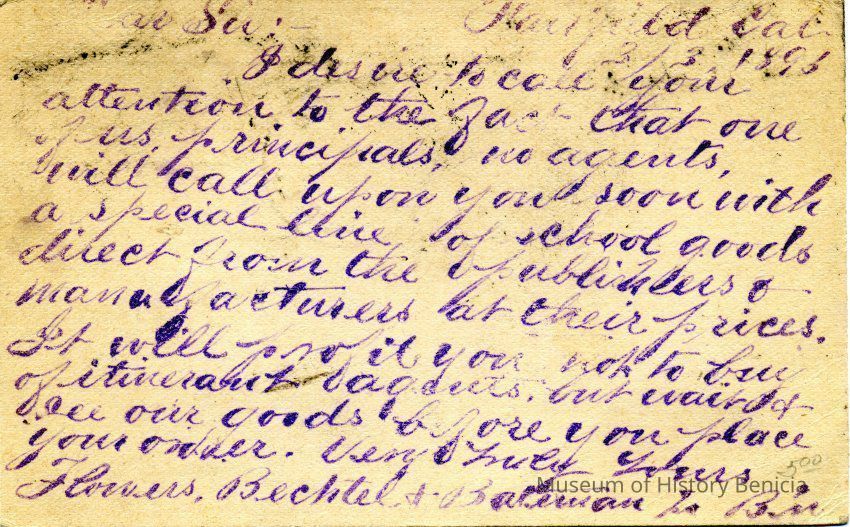 Dear Sir:- Fairfield Cal.
3/3 1896
I desire to call your
attention to the fact that one
of us, principals, no agents,
will call upon you soon with
a special line of school goods
direct from the publishers &
manufacturers at their prices.
It will profit you not to buy
of itinerant agents, but wait &
see our goods before you place
your order. Very truly yours
5.00
Flowers, Bechtel & Bateman
Museum of History Benicia